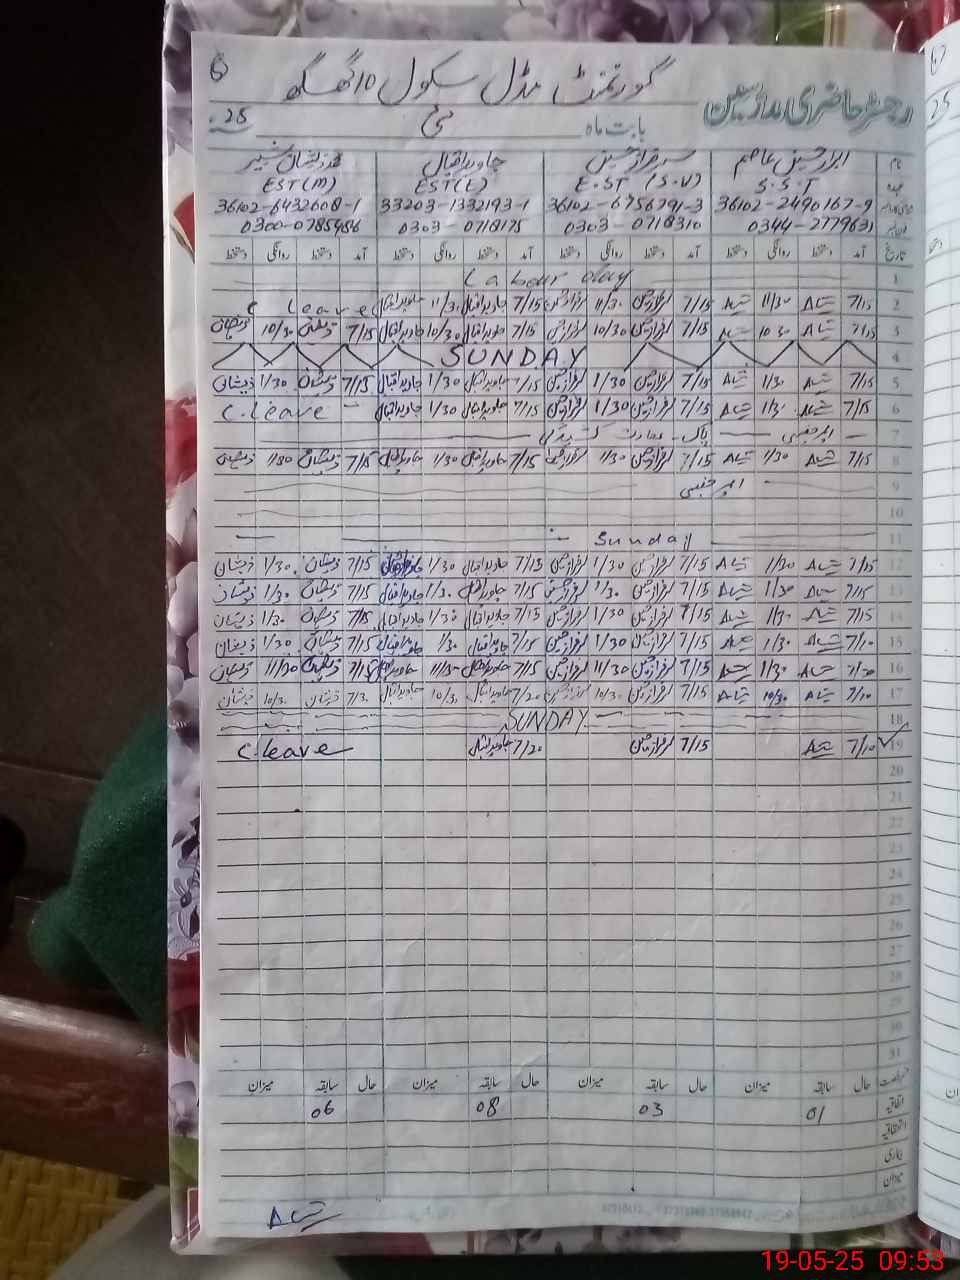 6 گورنمنٹ مڈل سکول 10 گھگھ
رجسٹر حاضری مدرسین
بابت ماہ مئی 25
نام ابرار حسین عاصم سرفراز حسین جاوید اقبال محمد ذیشان شبیر
عہدہ S.S.T E.ST (S.V) EST(E) EST(M)
36102-2490167-9 36102-6756791-3 33203-1332193-1 36102-6432608-1
0344-2779631 0303-0718310 0303-0718175 0300-0785486
تاریخ آمد دستخط روانگی دستخط آمد دستخط روانگی دستخط آمد دستخط روانگی دستخط آمد دستخط روانگی دستخط
1 Labour day
2 7/15 11/30 7/15 سرفراز حسین 11/30 سرفراز حسین 7/15 جاوید اقبال 11/30 جاوید اقبال C leave
3 7/15 10/30 7/15 سرفراز حسین 10/30 سرفراز حسین 7/15 جاوید اقبال 10/30 جاوید اقبال 7/15 ذیشان 10/30 ذیشان
4 SUNDAY
5 7/15 1/30 7/15 سرفراز حسین 1/30 سرفراز حسین 7/15 جاوید اقبال 1/30 جاوید اقبال 7/15 ذیشان 1/30 ذیشان
6 7/15 1/30 7/15 سرفراز حسین 1/30 سرفراز حسین 7/15 جاوید اقبال 1/30 جاوید اقبال C.leave
7 ایمرجنسی پاک بھارت کشیدگی
8 7/15 1/30 7/15 سرفراز حسین 1/30 سرفراز حسین 7/15 جاوید اقبال 1/30 جاوید اقبال 7/15 ذیشان 1/30 ذیشان
9 ایمرجنسی
10
11 Sunday
12 7/15 1/30 7/15 سرفراز حسین 1/30 سرفراز حسین 7/15 جاوید اقبال 1/30 جاوید اقبال 7/15 ذیشان 1/30 ذیشان
13 7/15 1/30 7/15 سرفراز حسین 1/30 سرفراز حسین 7/15 جاوید اقبال 1/30 جاوید اقبال 7/15 ذیشان 1/30 ذیشان
14 7/15 1/30 7/15 سرفراز حسین 1/30 سرفراز حسین 7/15 جاوید اقبال 1/30 جاوید اقبال 7/15 ذیشان 1/30 ذیشان
15 7/10 1/30 7/15 سرفراز حسین 1/30 سرفراز حسین 7/15 جاوید اقبال 1/30 جاوید اقبال 7/15 ذیشان 1/30 ذیشان
16 11/30 7/15 سرفراز حسین 11/30 سرفراز حسین 7/15 جاوید اقبال 11/30 جاوید اقبال 7/15 ذیشان 11/30 ذیشان
17 7/10 10/30 7/15 سرفراز حسین 10/30 سرفراز حسین 7/20 جاوید اقبال 10/30 جاوید اقبال 7/30 ذیشان 10/30 ذیشان
18 SUNDAY
19 7/10 7/15 سرفراز حسین 7/20 جاوید اقبال C.leave
20
21
22
23
24
25
26
27
28
29
30
31
رخصت حال سابقہ میزان حال سابقہ میزان حال سابقہ میزان حال سابقہ میزان
اتفاقیہ 01 03 08 06
بیماری
میزان
19-05-25 09:53